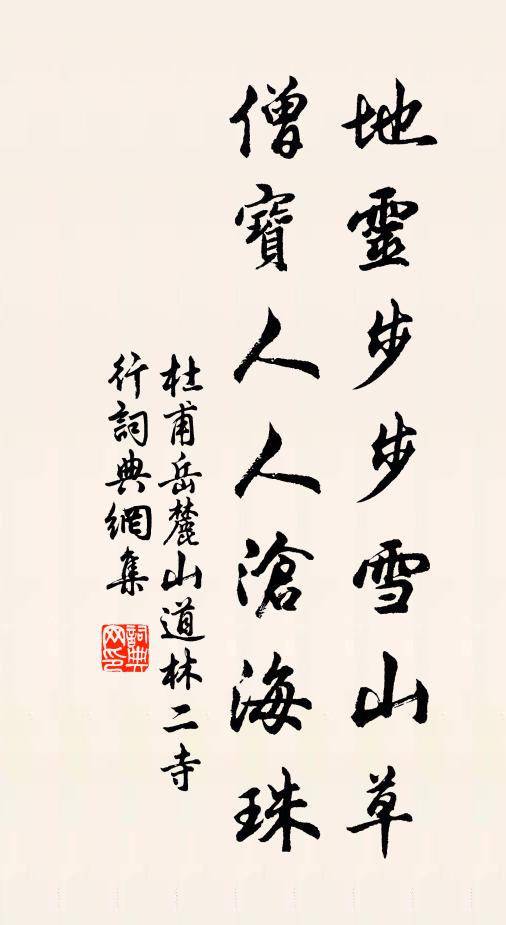 地靈步步雪山草
僧寶人人滄海珠
杜甫岳麓山道林二寺
行詞典網集
詞典
网印